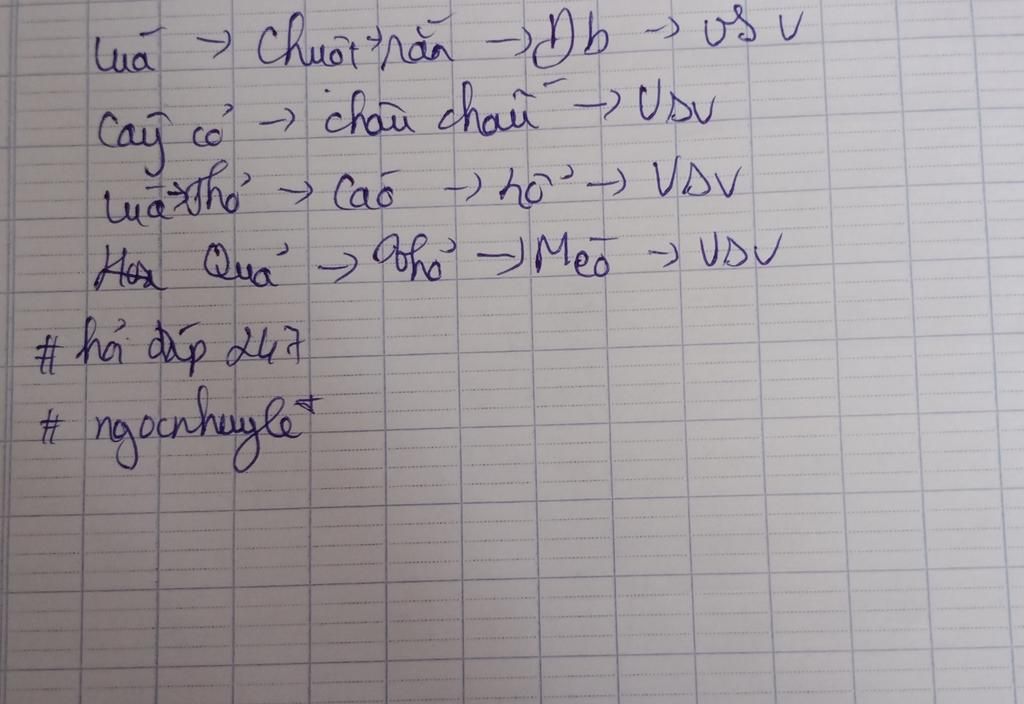 Luá → Chuột → rắn → Đb → VSV
Cây cỏ → châu chấu → VSV
Luá → Thỏ → Caó → hổ → VSV
Quả → Thỏ → Mèo → VSV
# hỏi đáp 247
# ngocnhuyle